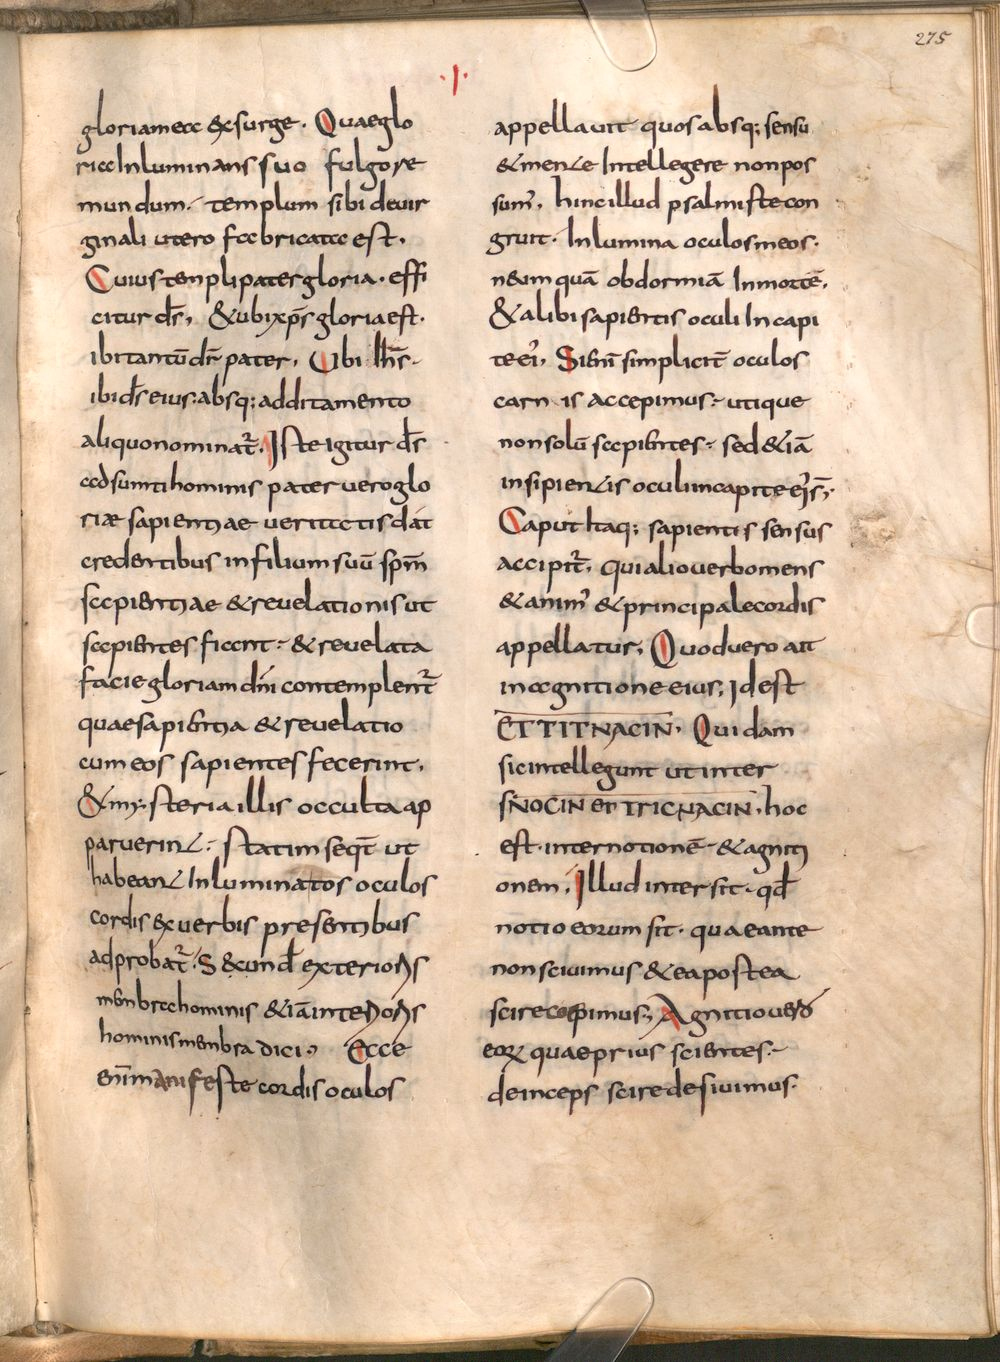 275
·I·
gloria mea exsurge. Quae glo
ria inluminans suo fulgore
mundum. templum sibi de uir
ginali utero fabricata est.
Cuius templi pater gloria. effi
citur ds̄, & ubi xp̄s gloria est.
ibi tantū dr̄ pater, Ubi ih̄s.
ibi ds̄ eius. absq; additamento
aliquo nominat̄. Iste igitur ds̄
adsumti hominis pater uero glo
riæ sapientiae ueritatis dat
credentibus in filium suū spm̄
sapientiae & reuelationis ut
sapientes fiant. & reuelata
facie gloriam dn̄i contemplent̄
quae sapientia & reuelatio
cum eos sapientes fecerint,
& mysteria illis occulta ap
paruerint. statim seqt̄ ut
habeant Inluminatos oculos
cordis ex uerbis presentibus
adprobat̄. S& cund̄ exterioris
membra hominis & iā interioris
hominis membra dici, Ecce
enī manifeste cordis oculos
appellauit quos absq; sensu
& mente Intellegere non pos
sum̄, hinc illud psalmiste con
gruit. Inlumina oculos meos.
ne umquā obdormiā In mortē,
& alibi sapientis oculi In capi
te ei', Si enī simpliciter oculos
carnis accepimus. utique
non solū sapientes. sed & iā
insipientis oculi in capite ei' s̄.
Caput itaq; sapientis sensus
accipit̄, qui alio uerbo mens
& anim' & principale cordis
appellatur, Quod uero ait
in agnitione eius, Id est
ETTITNACIN. Quidam
sic intellegunt ut inter
SNOCIN et TRICNACIN, hoc
est. inter notionē & agniti
onem, Illud inter sit. qd̄
notio eorum sit. quae ante
non sciuimus & ea postea
scire coepimus, Agnitio uero
eorꝝ quae prius scientes.
deinceps scire desiuimus.